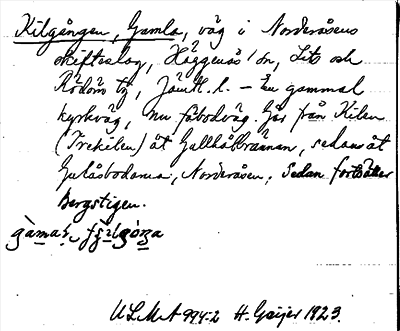 Kilgången, Gamla, väg i Norderåsens
skifteslag, Häggenås sn, Lits och
Rödöns tg, Jämtl. l. – En gammal
kyrkväg, nu fäbodväg. Går från Kilen
(Trekilen) åt Gullhålbrännan, sedan åt
Gulåsbodarna, Norderåsen; Sedan fortsätter
Bergstigen.
ULMA 994:2 H. Geijer 1923.